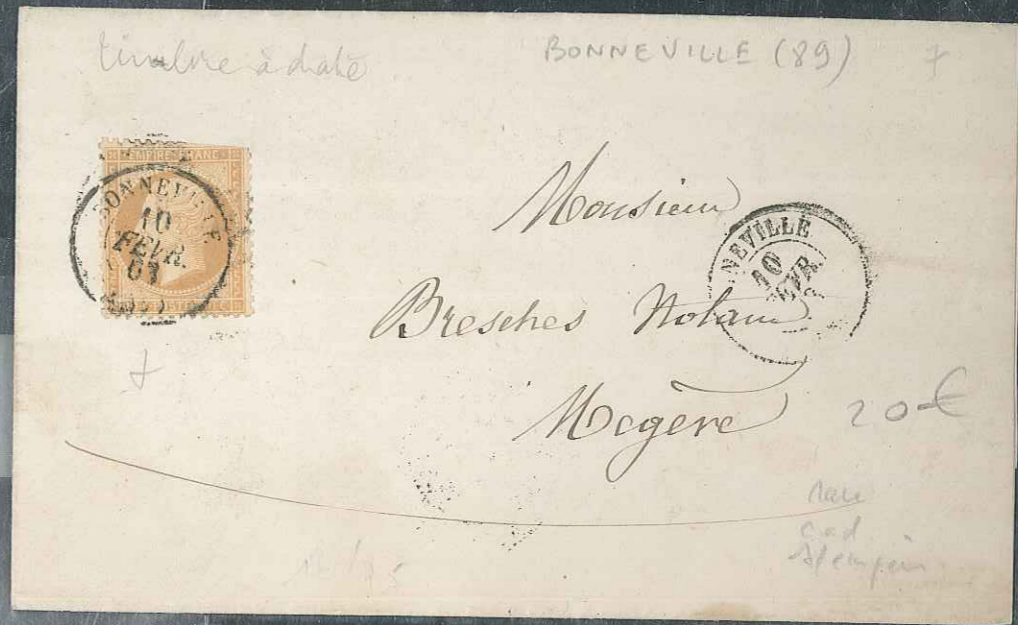 timbre à date
BONNEVILLE (89) 7
EMPIRE FRANC
BONNEVILLE
10
FEVR.
Monsieur
NEVILLE
10
EVR.
Bresches Notaire
Megère
20 €
rare
cad